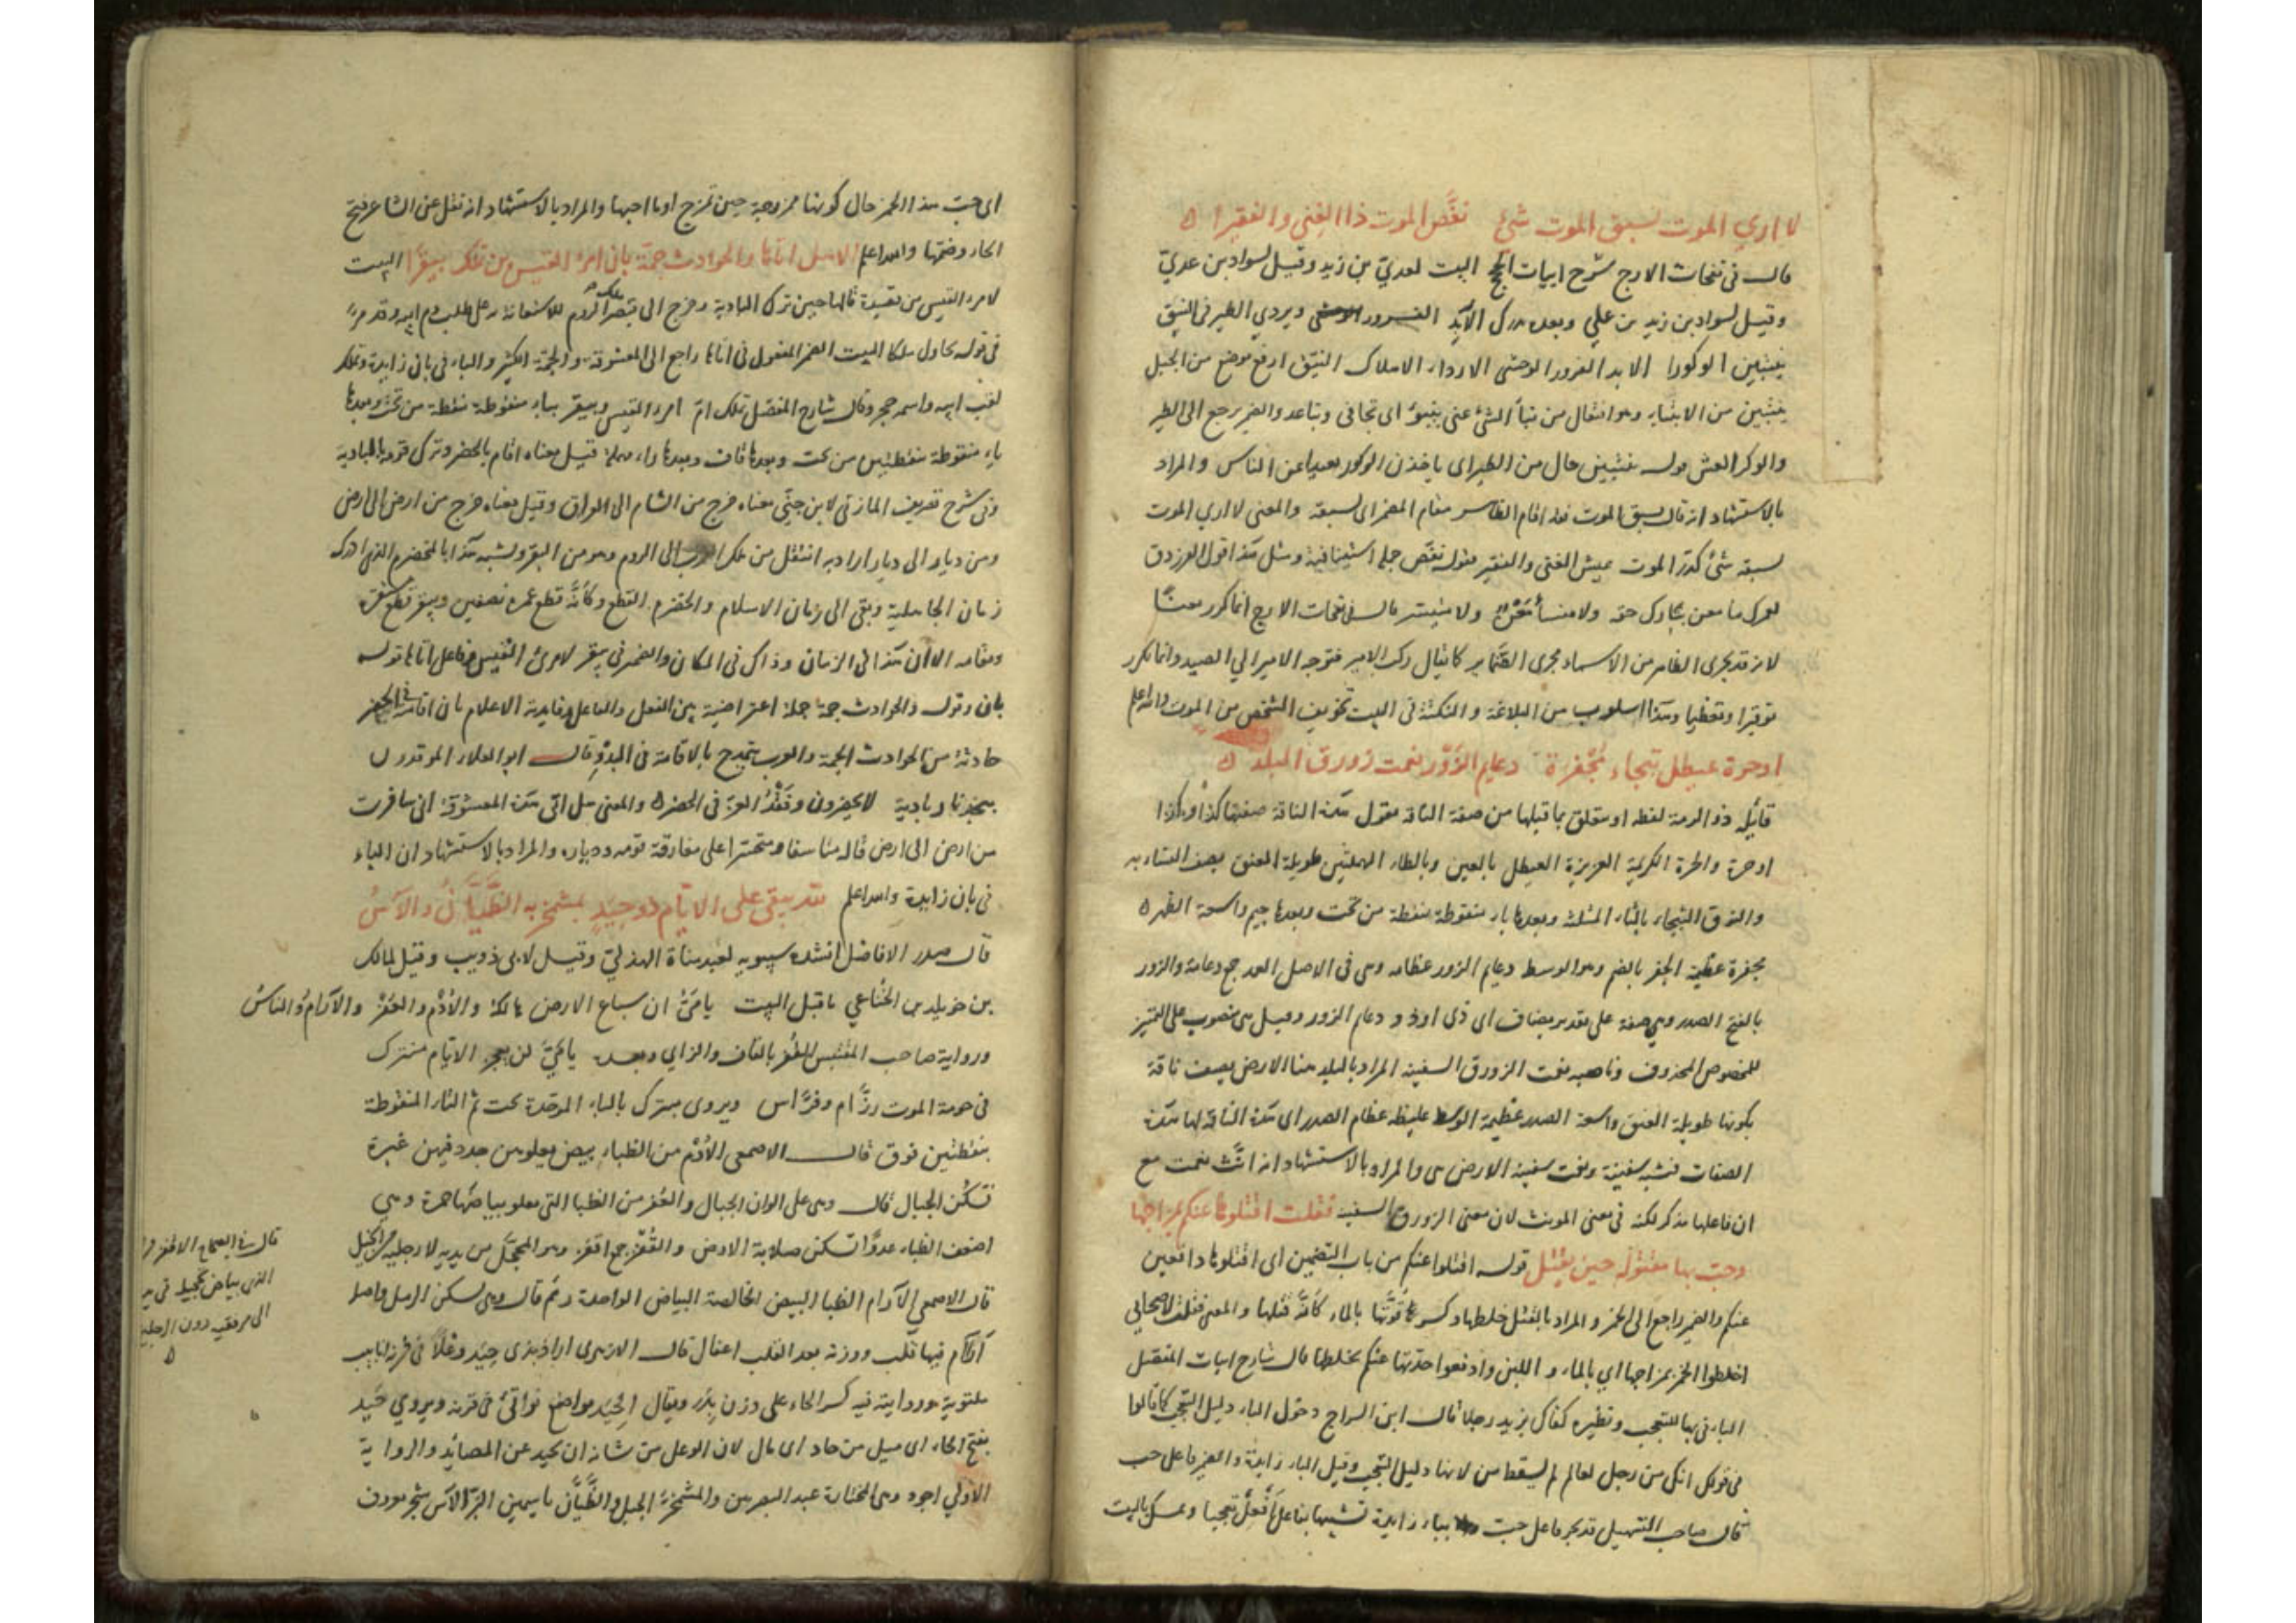 لا اري الموت يسبق الموت شئ نغّص الموت ذا الغني والفقيرا ه
قال في نفحات الارج شرح ابيات البيت لعديّ بن زيد وقيل لسواد بن عديّ
وقيل لسواد بن زيد بن علي وبعده يدرك الآبد الفرور ويردي الطير في النيق
يبتنين الوكورا الابد الفرور الوحشي الارداء الاهلاك النيق ارفع موضع من الجبل
من نبأ الشئ عني ينبؤ اى تجافى وتباعد والضمير يرجع الى الطير
والوكر العش قوله حال من الطير اى ياخذن الوكور بعيدا عن الناس والمراد
بالاستشهاد انه قال يسبق الموت فقد اقام الظاهر مقام المضمر اى يسبقه والمعنى لا اري الموت
يسبقه شئ كدّر الموت عيش الغنى والفقير قوله نغّص جملة استينافية ومثل هذا قول الفرزدق
لعمرك ما معن بتارك حقه ولا منسأ معن ولا متيسر قال في نفحات الارج انما كرر معنًا
لانه قد يجرى الظاهر من الاسماء مجرى الضماير كما يقال ركب الامير فتوجه الامير الي الصيد وانما تكرر
توقيرا وتعظيما وهذا اسلوب من البلاغة والنكتة فى البيت تخويف الشخص من الموت والله اعلم
او حرة عيطل ثبجاء مجفرة دعايم الزّور نعمت زورق البلد ه
قائله ذو الرمة لفظه او متعلق بما قبلها من صفة الناقة يقول هذه الناقة صفتها كذا وكذا
او حرة والحرة الكريمة العزيزة العيطل بالعين وبالطاء المهملتين طويلة العنق يصف النساء به
والنوق الثبجاء بالثاء المثلثة وبعدها باء منقوطة بنقطة من تحت وبعدها جيم واسعة الظهر ه
مجفرة عظيمة الجفر بالضم وهو الوسط دعايم الزور عظامه وهى فى الاصل العمد جمع دعامة والزور
بالفتح الصدر وهي صفة على تقدير مضاف اى ذى او ذو دعايم الزور وقيل هى منصوب على التمييز
للمخصوص المحذوف وناصبه نعت الزورق السفينة المراد بالبلد هنا الارض يصف ناقة
بكونها طويلة العنق واسعة الصدر عظيمة الوسط غليظة عظام الصدر اى هذه الناقة لها هذه
الصفات فتشبه سفينة ونعت سفينة الارض هى والمراد بالاستشهاد انه انّث نعمت مع
ان فاعلها مذكر لكنه فى معنى المونث لان معنى الزورق السفينة فقلت اقتلوها عنكم بمزاجها
وحبّ بها مقتولة حين تقتل قوله اقتلوها عنكم من باب التضمين اى اقتلوها دافعين
عنكم والضمير راجع الى الخمر والمراد بالقتل خلطها وكسر قوّتها بالماء كأنّه قتلها والمعنى فقلت لاصحابي
اخلطوا الخمر بمزاجها اي بالماء و اللبن وادفعوا حدّتها عنكم بخلطها قال شارح ابيات المفصل
الباء في بها للتعجب ونظيره كفاك بزيد رجلا قال ابن السراج دخول الباء دليل التعجب كما قالوا
فى قولك انك من رجل لعالم لم يسقط من لانها دليل التعجب وقيل الباء زايدة والضمير فاعل حب
قال صاحب التسهيل قد يجر فاعل حبّ بباء زايدة تشبيها بفاعل أفعل تعجبا وتمسك بالبيت
اى حبت هذا الخمر حال كونها ممزوجة حين تمزج او ما احبها والمراد بالاستشهاد انه نقل عن الشاعر فتح
الحاء وضمها والله اعلم الا هل اتاها والحوادث جمة بان امرأ القيس بن تملك بيقرا البيت
لامرء القيس من قصيدة قالها حين ترك البادية وخرج الى قيصر ملك الروم للاستعانة على طلب دم ابيه وقد مر
فى قوله نحاول ملكا البيت الضمير المفعول فى اتاها راجع الى المعشوقة والجمة الكثير والباء فى بان زايدة وتملك
لقب ابيه واسمه حجر وقال شارح المفصل تملك امّ امرء القيس وبيقر بباء منقوطة بنقطة من تحت وبعدها
ياء منقوطة بنقطتين من تحت وبعدها قاف وبعدها راء مهملة قيل معناه اقام بالحضر وترك قومه بالبادية
وفى شرح تصريف المازنى لابن جنّي معناه خرج من الشام الى العراق وقيل معناه خرج من ارض الى ارض
ومن ديار الى ديار اراد به انتقل من ملك العرب الى الروم وهو من البقر ويشبه هذا بالمخضرم الذى ادرك
زمان الجاهلية وبقى الى زمان الاسلام والخضرم القطع وكأنّه قطع عمره نصفين وبيقر قطع سفره
ومقامه الا ان هذا فى الزمان وذاك فى المكان والضمير فى بيقر لامرئ القيس وفاعل اتاها قوله
بان وقوله والحوادث جمة جملة اعتراضية بين الفعل والفاعل وفايدته الاعلام بان اقامته فى الحضر
حادثة من الحوادث الجمة والعرب يتمدح بالاقامة فى البدو قال ابو العلاء الموقدون
بنجد نار بادية لا يحضرون وفقد العزّ فى الحضر ه والمعنى هل اتى هذه المعشوقة انى سافرت
من ارض الى ارض قاله متاسفا ومتحسرا على مفارقة قومه ودياره والمراد بالاستشهاد ان الباء
فى بان زايدة والله اعلم تالله يبقى على الايّام ذو حيد بمشمخر به الظيّان والآس
قال صدر الافاضل انشده سيبويه لعبد مناة الهذلي وقيل لابى ذويب وقيل لمالك
بن خويلد الخناعي ما قبل البيت يا ميّ ان سباع الارض هالكة والأدم والعفر والآرام والناس
ورواية صاحب المقتبس القفز بالقاف والزاي وبعده يا ميّ لن يعجز الايّام مبترك
فى حومة الموت رزّام وفرّاس ويروى مبترك بالباء الموحدة تحت ثم التاء المنقوطة
بنقطتين فوق قال الاصمعى الأدم من الظباء بيض يعلوهن جدد فيهن غبرة
تسكن الجبال قال وهى على الوان الجبال والعفر من الظبا التى يعلو بياضها حمرة وهي
اضعف الظباء عدوًا تسكن صلابة الارض والقفز جمع اقفز وهو المحجّل من يديه لا رجليه من الخيل
قال الاصمعي الآرام الظبا البيض الخالصة البياض الواحدة رئم قال وهى تسكن الرمل واصل
آرام فيها قلب ووزنه بعد القلب اعفال قال الازهرى اراد بذى حيد وعلا فى قرنه انابيب
ملتوية ورواية فيه كسر الحاء على وزن بدر ويقال الحيد مواضع نواتئ فى قرنه ويروي حيد
بفتح الحاء اى ميل من حاد اى مال لان الوعل من شانه ان يحيد عن المصائد والرواية
الاولي اجود وهى المختارة عند البصريين والمشمخرّ الجبل والظّيّان ياسمين البرّ الآس شجر معروف
قال فى الصحاح الاقفز
الذى بياض تحجيله فى يديه
الى مرفقيه دون الرجلين
ه